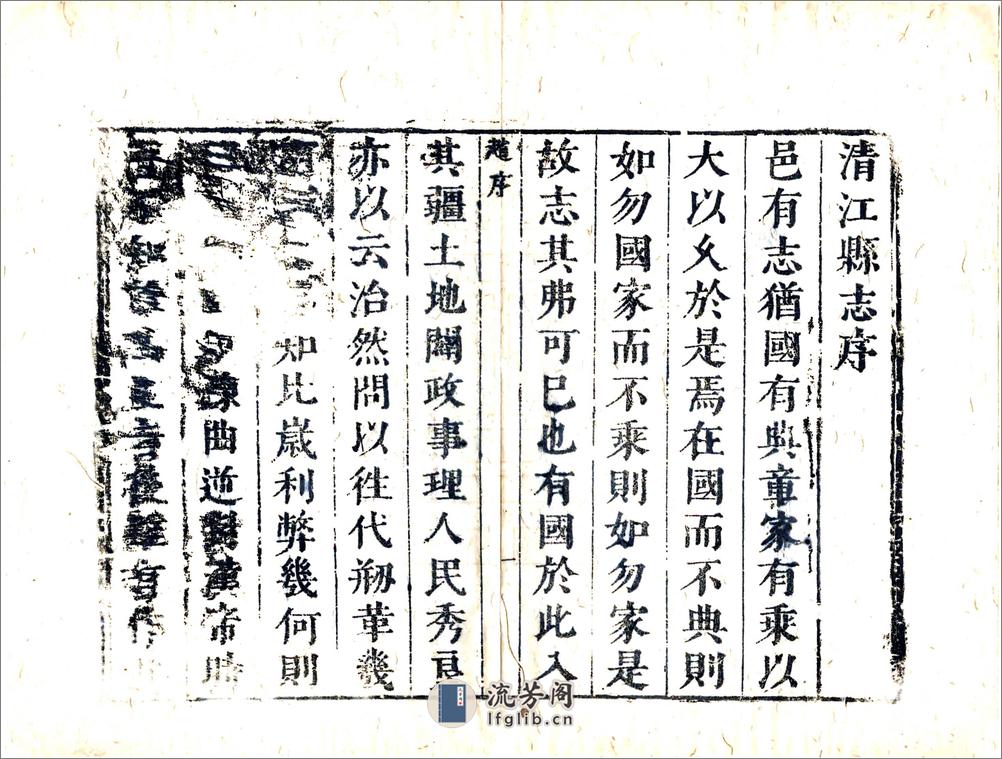 清江縣志序
邑有志猶國有典章家有乘以
大以久於是焉在國而不典則
如勿國家而不乘則如勿家是
故志其弗可已也有國於此入
趙序
其疆土地闢政事理人民秀良
亦以云治然問以徃代剏革幾
知比歲利弊幾何則
曲道
言
流芳阁
lfglib.cn